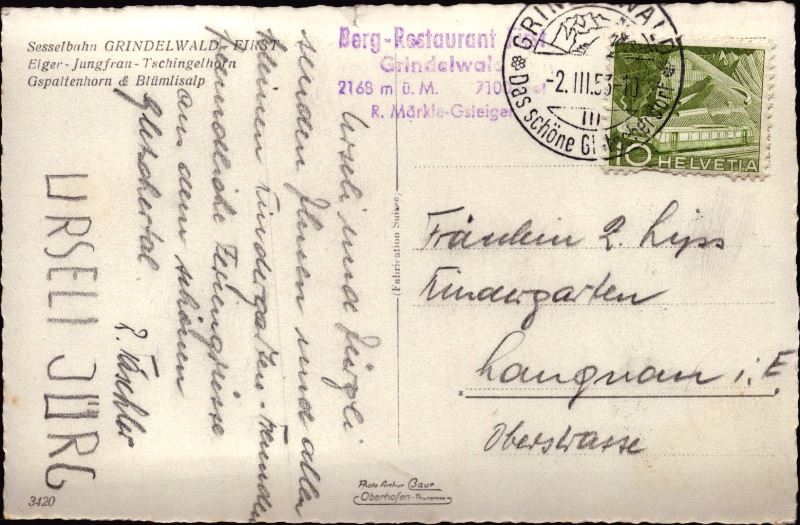 Sesselbahn GRINDELWALD - FIRST
Eiger - Jungfrau - Tschingelhorn
Gspaltenhorn & Blümlisalp
Berg-Restaurant First
Grindelwald
2168 m ü. M. 710
R. Märkle-Gsteiger
GRINDELWALD
-2.III.53-10
III
Das schöne Gletscherdorf
10 HELVETIA
Urseli und Jürgli
senden Ihnen und allen
kleinen Kindergarten-Freunden
freundliche Feriengrüsse
aus dem schönen
Gletschertal
URSELI JÜRG
(Fabrication Suisse)
Fräulein L. Lyss
Kindergarten
Langnau i. E
Oberstrasse
Photo Arthur Baur
Oberhofen-Thunersee
3420